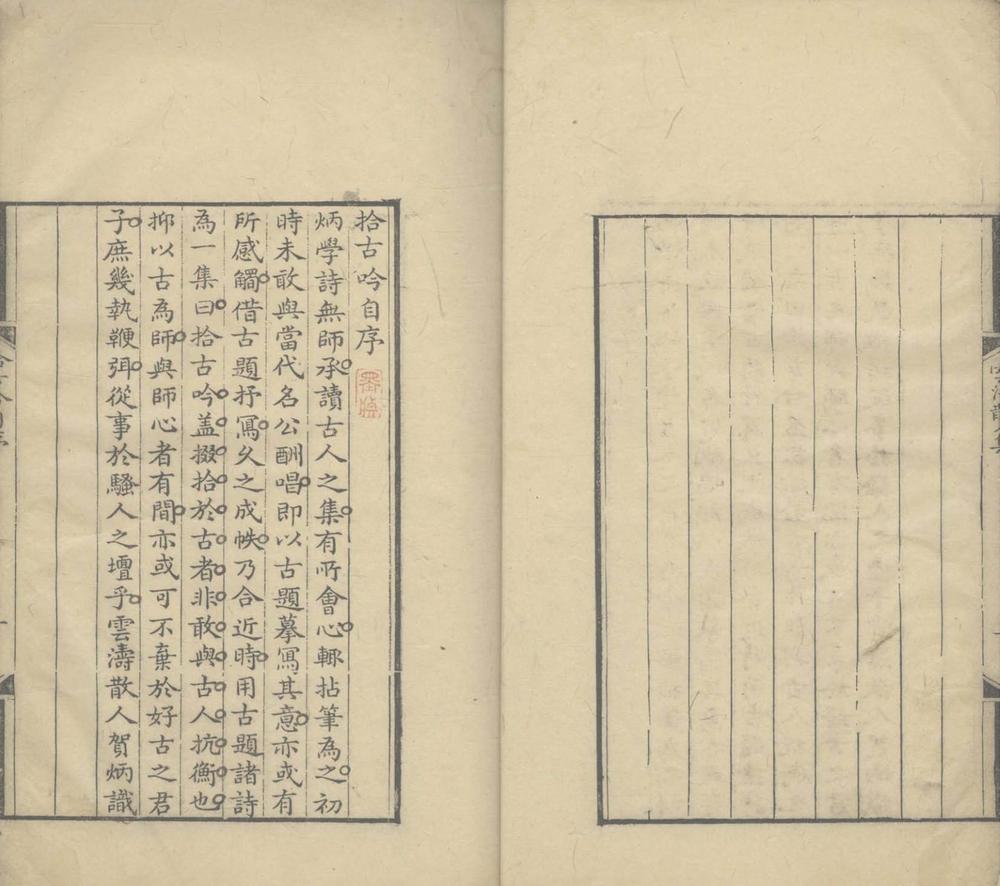 拾古吟自序
炳學詩無師承讀古人之集有所會心輙拈筆為之初
時未敢與當代名公酬唱即以古題摹寫其意亦或有
所感觸借古題抒寫久之成帙乃合近時用古題諸詩
為一集曰拾古吟盖掇拾於古者非敢與古人抗衡也
抑以古為師與師心者有間亦或可不棄於好古之君
子庶幾執鞭弭從事於騷人之壇乎雲濤散人賀炳識